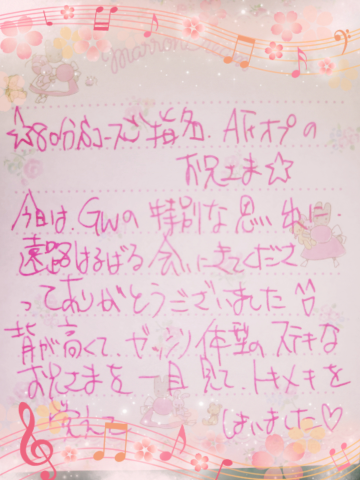 Marron
☆80分Sコースご指名、AFオプの
お兄さま☆
今日は、GWの特別な思い出に、
遠路はるばる会いにきてくださ
ってありがとうございました
背が高くて、ガッシリ体型のステキな
お兄さまを一目見て、トキメキを
覚えて
しまいました♡